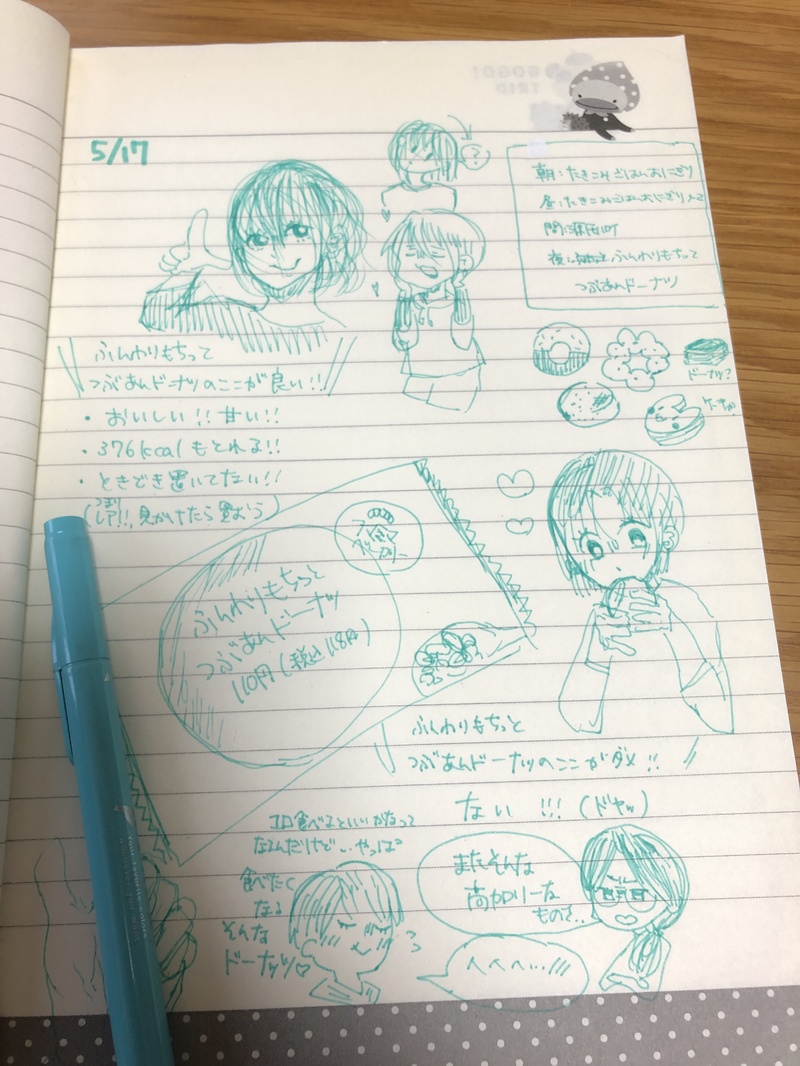 5/17
朝:たきこみごはんおにぎり
昼:たきこみごはんおにぎり
間:
夜: ふんわりもちっと
つぶあんドーナツ
ふんわりもちって
つぶあんドーナツのここが良い!!
・おいしい!!甘い!!
・376kcalもとれる!!
・ときどき置いてない!!
(つまりレア!!,見かけたら買おう)
ドーナツ?
?
ふんわりもちっと
つぶあんドーナツ
110円(税込118円)
ふんわりもちっと
つぶあんドーナツのここがダメ!!
ない!!!(ドヤッ)
食べるといいかなって
なるんだけど…やっぱ
食べたく
なる
そんな
ドーナッツ♡
またそんな
高カロリーな
ものを..
へへへ…!!!
Your Favorite Colors